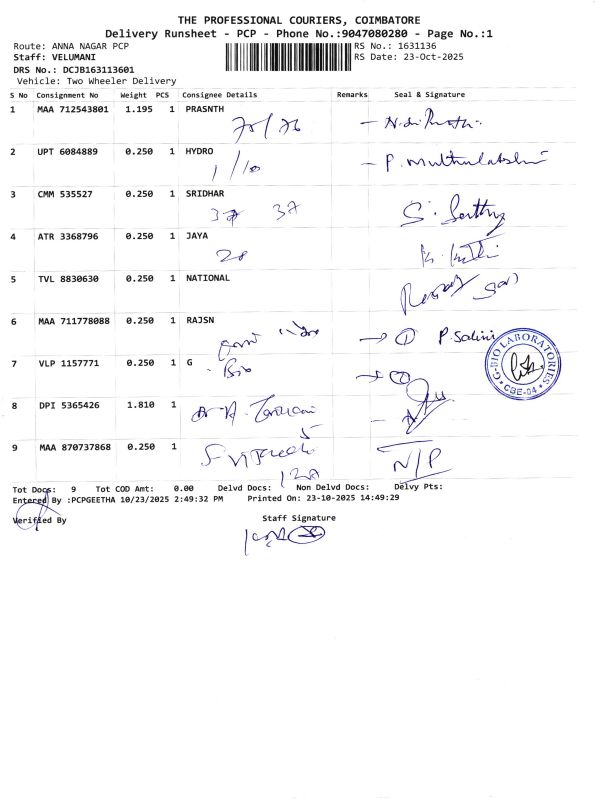 THE PROFESSIONAL COURIERS, COIMBATORE
Delivery Runsheet - PCP - Phone No.:9047080280 - Page No.:1
Route: ANNA NAGAR PCP RS No.: 1631136
Staff: VELUMANI RS Date: 23-Oct-2025
DRS No.: DCJB163113601
Vehicle: Two Wheeler Delivery
S No Consignment No Weight PCS Consignee Details Remarks Seal & Signature
1 MAA 712543801 1.195 1 PRASNTH
75/76
2 UPT 6084889 0.250 1 HYDRO
1/10 P. Muthulakshmi
3 CMM 535527 0.250 1 SRIDHAR
37 37
4 ATR 3368796 0.250 1 JAYA
28
5 TVL 8830630 0.250 1 NATIONAL
6 MAA 711778088 0.250 1 RAJSN
1 P. Salini
7 VLP 1157771 0.250 1 G
Bio
G-BIO LABORATORIES
CBE-04
8 DPI 5365426 1.810 1
9 MAA 870737868 0.250 1
N/P
Tot Docs: 9 Tot COD Amt: 0.00 Delvd Docs: Non Delvd Docs: Delvy Pts:
Entered By :PCPGEETHA 10/23/2025 2:49:32 PM Printed On: 23-10-2025 14:49:29
Verified By Staff Signature